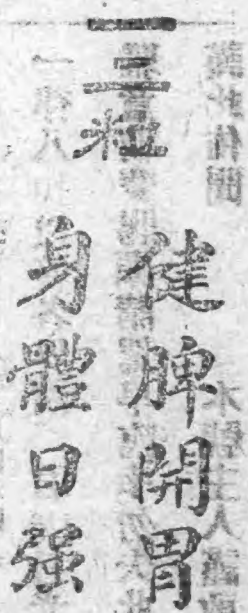 一二粒
健脾開胃
身體日强